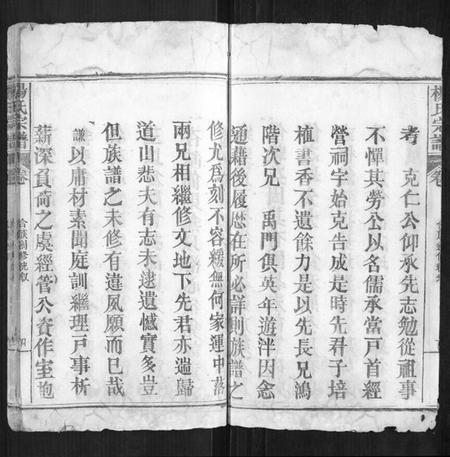 楊氏宗譜
卷
考 克仁公仰承先志勉從祖事
不憚其勞公以名儒承當戶首經
營祠宇始克告成是時先君子培
植書香不遺餘力是以先長兄鴻
階次兄 禹門俱英年遊泮因念
通籍後履歷在所必詳則族譜之
修尤為刻不容緩無何家運中落
兩兄相繼修文地下先君亦遄歸
道山悲夫有志未逮遺憾實多豈
但族譜之未修有違夙願而已哉
謙以庸材素聞庭訓繼理戶事析
薪深負荷之虞經管公資作室抱
楊氏宗譜
卷